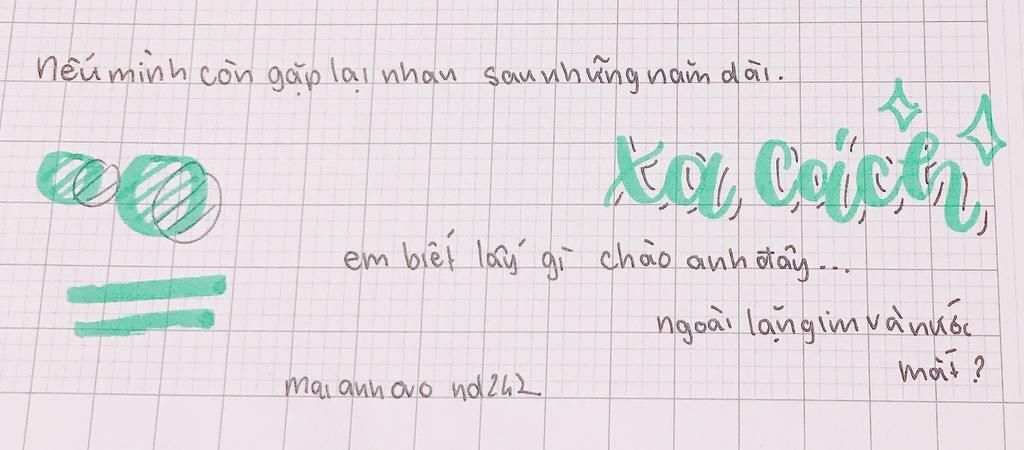 Nếu mình còn gặp lại nhau sau những năm dài.
xa cách
em biết lấy gì chào anh đây...
ngoài lặng im và nước
mắt?
maianhovo nd242